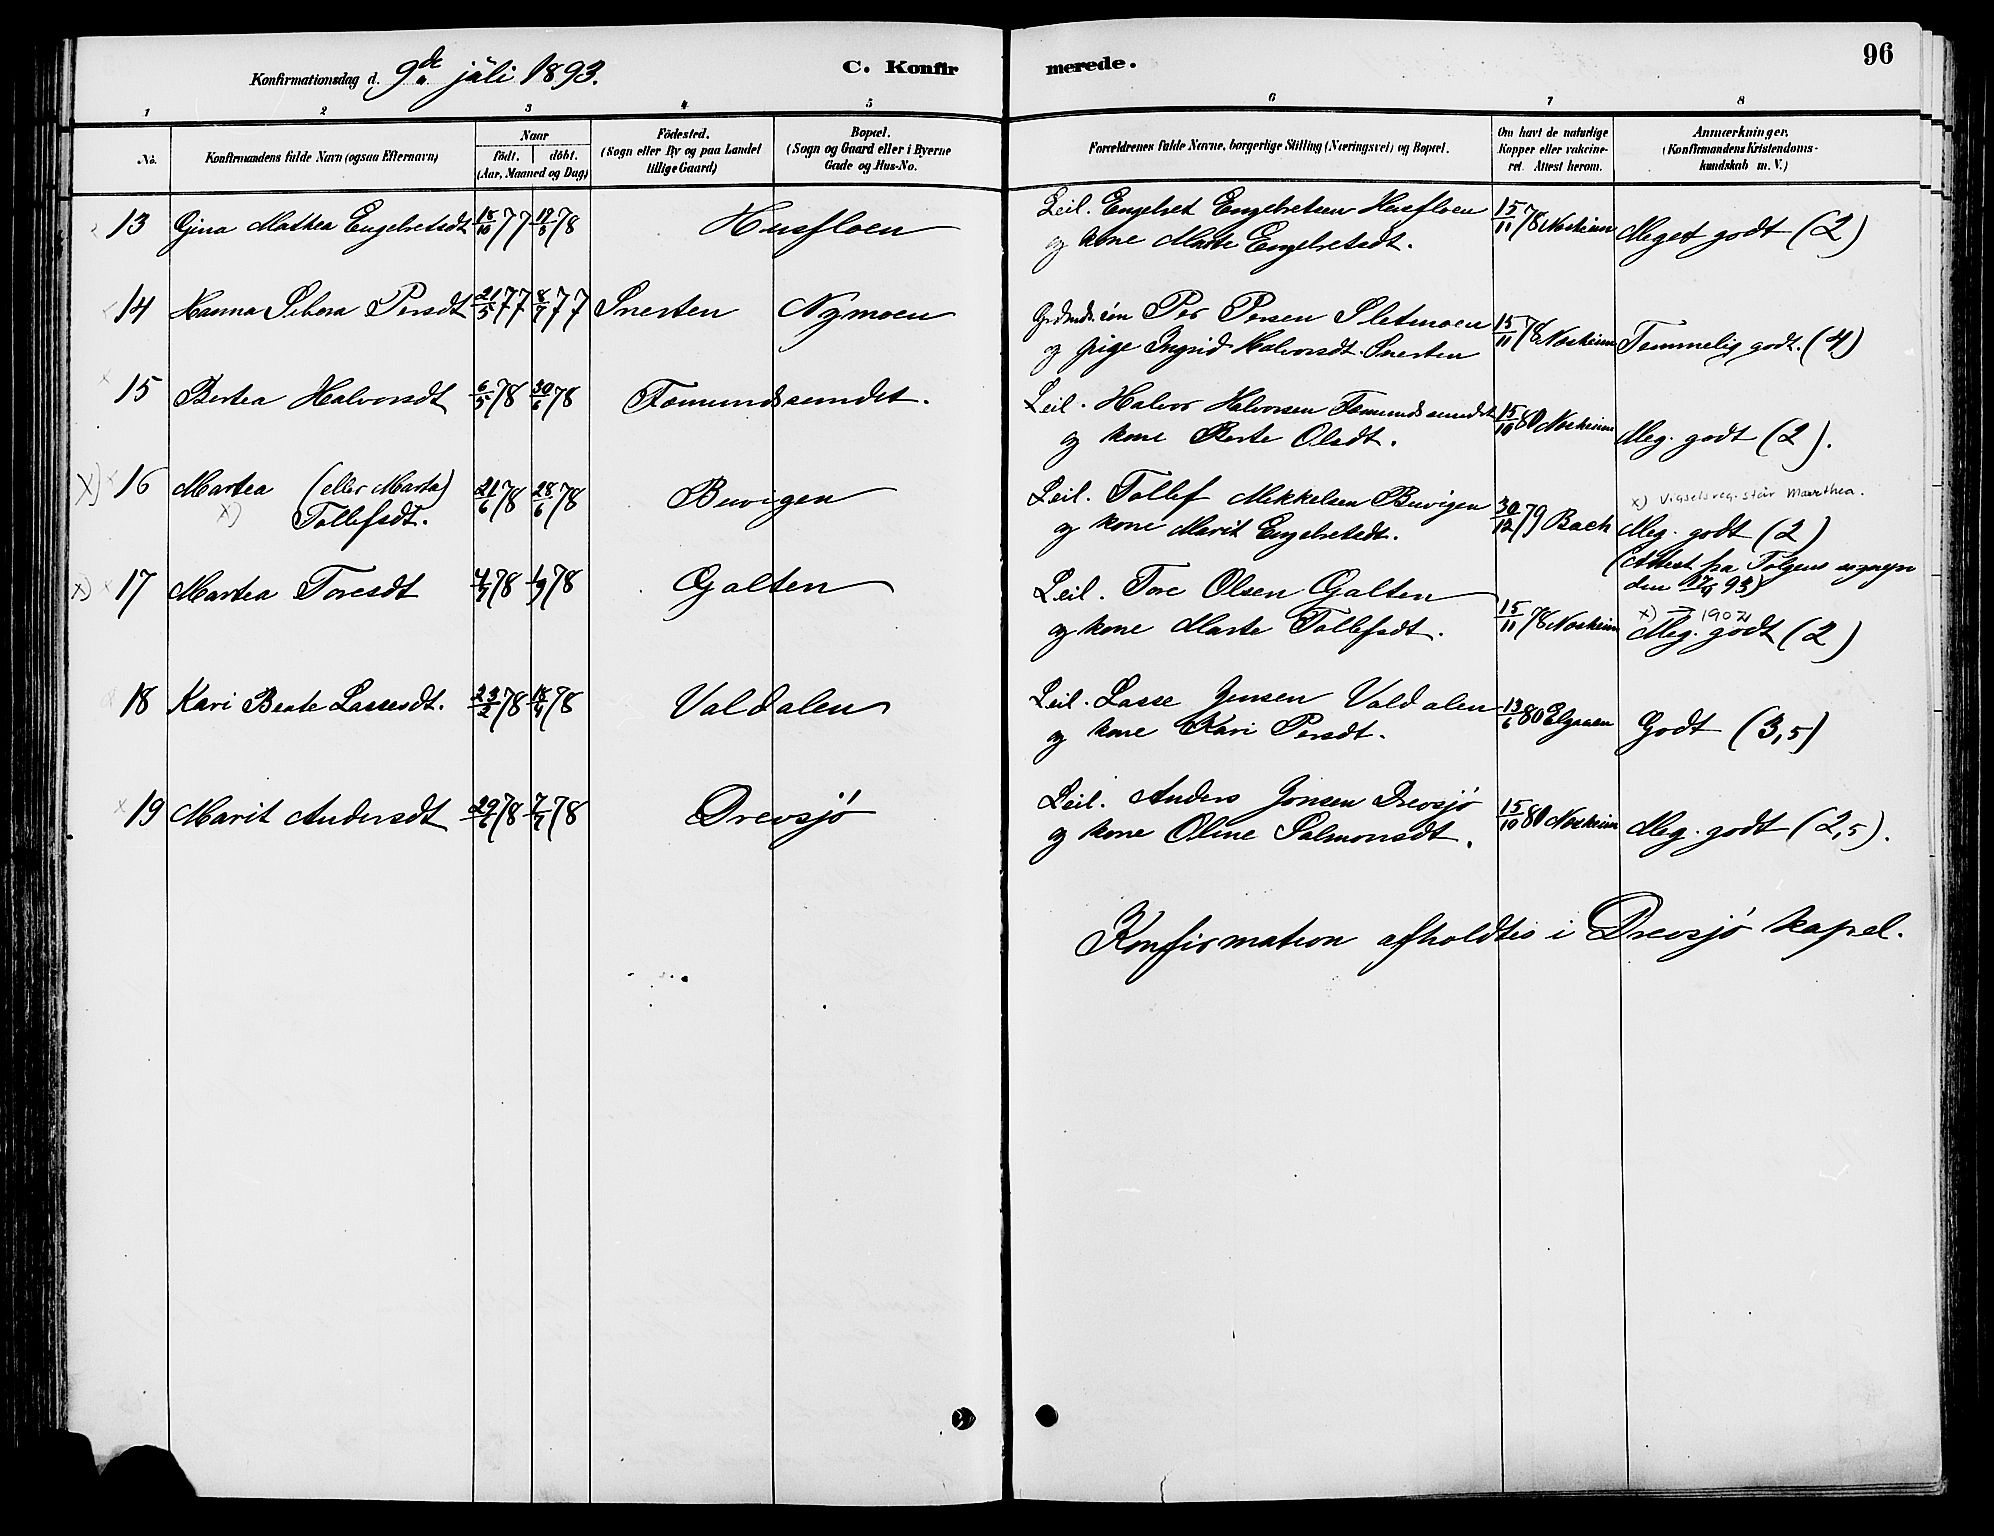 Konfirmationsdag d. 9de juli 1893.
C. Konfirmerede.
96
1 2 3 4 5 6 7 8
No.
Konfirmandens fulde Navn (ogsaa Efternavn)
Naar
födt. döbt.
(Aar, Maaned og Dag)
Födested.
(Sogn eller By og paa Landet
tillige Gaard)
Bopæl.
(Sogn og Gaard eller i Byerne
Gade og Hus-No.
Forældrenes fulde Navne, borgerlige Stilling (Næringsvei) og Bopæl.
Om havt de naturlige
Kopper eller vakcine-
ret. Attest herom.
Anmærkninger.
(Konfirmandens Kristendoms-
kundskab m. V.)
13 Gina Mathea Engebretsdt 18/10 77 19/5 78 Husfloen
Leil. Engebret Engebretsen Husfloen
og kone Marte Engebretsdt.
15/11 78 Noskeim
Meget godt (2)
14 Hanna Sibera Persdt 21/5 77 8/7 77 Snerten Nymoen
Grdmds.søn Per Persen Sletmoen
og pige Ingrid Halvorsdt. Snerten
15/11 78 Noskeim
Temmelig godt. (4)
15 Bertea Halvorsdt 6/5 78 30/6 78 Fæmundsenndet.
Leil. Halvor Halvorsen Fæmundsenndet
og kone Berte Olsdt.
15/10 80 Noskeim
Meg. godt (2).
x) 16 Martea (eller Marta)
x) Tollefsdt. 21/6 78 28/6 78 Buvigen
Leil. Tollef Mikkelsen Buvigen
og kone Marit Engebretsdt.
30/12 79 Bach
x) Vigselsreg. står Marthea.
Meg. godt (2)
(Attest fra Tolgens sogn
den 93)
x) 17 Martea Toresdt 4/7 78 1/9 78 Galten
Leil. Tore Olsen Galten
og kone Marte Tollefsdt.
15/11 78 Noskeim
x) → 1902
Meg. godt (2)
18 Kari Beate Lassesdt. 23/2 78 18/4 78 Valdalen
Leil. Lasse Jensen Valdalen
og kone Kari Persdt.
13/6 80 Elgaaen
Godt (3,5)
x 19 Marit Andersdt 29/6 78 7/7 78 Drevsjö
Leil. Anders Jonsen Drevsjö
og kone Oline Salmonsdt.
15/10 80 Noskeim
Meg. godt (2,5).
Konfirmation afholdtes i Drevsjö kapel.